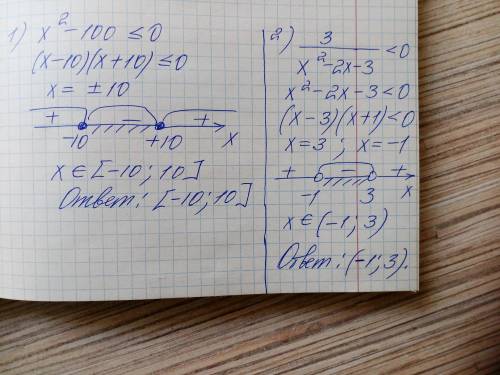 1) x² - 100 ≤ 0
(x-10)(x+10) ≤ 0
x = ± 10
+ − +
-10 +10 x
x ∈ [-10; 10]
Ответ: [-10; 10]
2) 3/(x² - 2x - 3) < 0
x² - 2x - 3 < 0
(x-3)(x+1) < 0
x = 3 ; x = -1
+ − +
-1 3 x
x ∈ (-1; 3)
Ответ: (-1; 3).